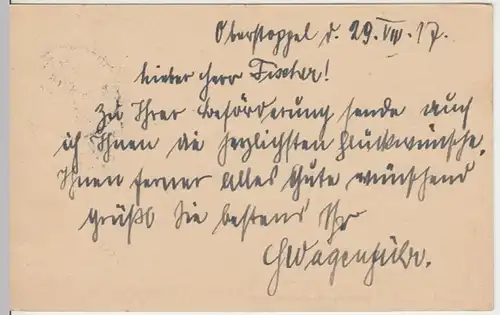 Oberstoppel d. 29. VIII. 17.
Lieber Herr Fischer!
Zu Ihrer Beförderung sende auch
ich Ihnen die herzlichsten Glückwünsche.
Ihnen ferner alles Gute wünschend
grüßt Sie bestens Ihr